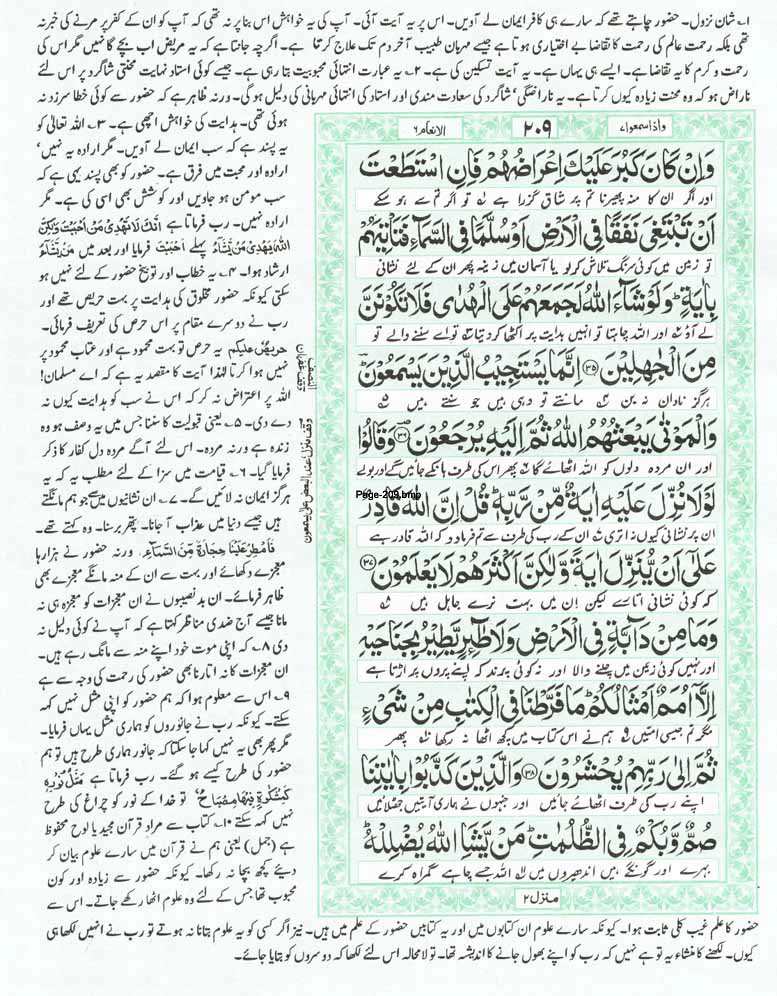 ۱؎ شان نزول۔ حضور چاہتے تھے کہ سارے ہی کافر ایمان لے آویں۔ اس پر یہ آیت آئی۔ آپ کی یہ خواہش اس بنا پر نہ تھی کہ آپ کو ان کے کفر پر مرنے کی خبر نہ
تھی بلکہ رحمت عالم کی رحمت کا تقاضا بے اختیاری ہوتا ہے جیسے مہربان طبیب آخر دم تک علاج کرتا ہے۔ اگرچہ جانتا ہے کہ یہ مریض اب بچے گا نہیں مگر اس کی
رحمت و کرم کا یہ تقاضا ہے۔ ایسے ہی یہاں ہے۔ یہ آیت تسکین کی ہے۔ ۲؎ یہ عبارت انتہائی محبوبیت بتا رہی ہے۔ جیسے کوئی استاد نہایت محنتی شاگرد پر اس لئے
ناراض ہو کہ وہ محنت زیادہ کیوں کرتا ہے۔ یہ ناراضگی، شاگرد کی سعادت مندی اور استاد کی انتہائی مہربانی کی دلیل ہوگی۔ ورنہ ظاہر ہے کہ حضور سے کوئی خطا سرزد نہ
ہوئی تھی۔ ہدایت کی خواہش اچھی ہے۔ ۳؎ اللہ تعالیٰ کو
یہ پسند ہے کہ سب ایمان لے آویں۔ مگر ارادہ یہ نہیں'
ارادہ اور محبت میں فرق ہے۔ حضور کو بھی پسند یہی ہے کہ
سب مومن ہو جاویں اور کوشش بھی اسی کی ہے۔ مگر
ارادہ نہیں۔ رب فرماتا ہے اِنَّكَ لَا تَهْدِىْ مَنْ اَحْبَبْتَ وَلٰكِنَّ
اللّٰهَ يَهْدِىْ مَنْ يَّشَآءُ پہلے اَحْبَبْتَ فرمایا اور بعد میں مَنْ يَّشَآءُ
ارشاد ہوا۔ ۴؎ یہ خطاب اور توبیخ حضور کے لئے نہیں ہو
سکتی کیونکہ حضور مخلوق کی ہدایت پر بہت حریص تھے اور
رب نے دوسرے مقام پر اس حرص کی تعریف فرمائی۔
حَرِيْصٌ عَلَيْكُمْ یہ حرص تو بہت محمود ہے اور عتاب محمود پر
نہیں ہوا کرتا لہٰذا آیت کا مقصد یہ ہے کہ اے مسلمان!
اللہ پر اعتراض نہ کر کہ اس نے سب کو ہدایت کیوں نہ
دے دی۔ ۵؎ یعنی قبولیت کا سننا جس میں یہ وصف ہو وہ
زندہ ہے ورنہ مردہ۔ اس لئے آگے مردہ دل کفار کا ذکر
فرمایا گیا۔ ۶؎ قیامت میں سزا کے لئے مطلب یہ کہ یہ
ہرگز ایمان نہ لائیں گے۔ ۷؎ ان نشانیوں میں سے جو ہم مانگتے
ہیں جیسے دنیا میں عذاب آ جانا۔ پتھر برسنا۔ وہ کہتے تھے۔
فَاَمْطِرْ عَلَيْنَا حِجَارَةً مِّنَ السَّمَآءِ۔ ورنہ حضور نے ہزارہا
معجزے دکھائے اور بہت سے ان کے منہ مانگے معجزے بھی
ظاہر فرمائے۔ ان بد نصیبوں نے ان معجزات کو معجزہ ہی نہ
مانا جیسے آج ضدی مناظر کہتا ہے کہ آپ نے کوئی دلیل نہ
دی ۸؎ کہ اپنی موت خود اپنے منہ سے مانگ رہے ہیں۔
ان معجزات کا نہ اتارنا بھی حضور کی رحمت کی وجہ سے ہے
۹؎ اس سے معلوم ہوا کہ ہم حضور کو اپنی مثل نہیں کہہ
سکتے۔ کیونکہ رب نے جانوروں کو ہماری مثل یہاں فرمایا۔
مگر پھر بھی یہ نہیں کہا جا سکتا کہ جانور ہماری طرح ہیں تو ہم
حضور کی طرح کیسے ہو گئے۔ رب فرماتا ہے مَثَلُ نُوْرِهٖ
كَمِشْكٰوةٍ فِيْهَا مِصْبَاحٌ تو خدا کے نور کو چراغ کی طرح
نہیں کہہ سکتے ۱۰؎ کتاب سے مراد قرآن مجید یا لوح محفوظ
ہے (جمل) یعنی ہم نے قرآن میں سارے علوم بیان کر
دیئے کچھ بچا نہ رکھا۔ کیونکہ حضور سے زیادہ اور کون
محبوب تھا جس کے لئے وہ علوم اٹھا رکھے جاتے۔ اس سے
واذا سمعوا ۷ ۲۰۹ الانعام ۶
وَاِنْ كَانَ كَبُرَ عَلَيْكَ اِعْرَاضُهُمْ فَاِنِ اسْتَطَعْتَ
اور اگر ان کا منہ پھیرنا تم پر شاق گزرا ہے تو اگر تم سے ہو سکے
اَنْ تَبْتَغِىَ نَفَقًا فِى الْاَرْضِ اَوْ سُلَّمًا فِى السَّمَآءِ فَتَاْتِيَهُمْ
تو زمین میں کوئی سرنگ تلاش کرلو یا آسمان میں زینہ پھر ان کے لئے نشانی
بِاٰيَةٍ ؕ وَلَوْ شَآءَ اللّٰهُ لَجَمَعَهُمْ عَلَى الْهُدٰى فَلَا تَكُوْنَنَّ
لے آؤ اور اللہ چاہتا تو انہیں ہدایت پر اکٹھا کردیتا تو اے سننے والے تو
مِنَ الْجٰهِلِيْنَ ﴿۳۵﴾ اِنَّمَا يَسْتَجِيْبُ الَّذِيْنَ يَسْمَعُوْنَ ؕ
ہرگز نادان نہ بن مانتے تو وہی ہیں جو سنتے ہیں
وَالْمَوْتٰى يَبْعَثُهُمُ اللّٰهُ ثُمَّ اِلَيْهِ يُرْجَعُوْنَ ﴿۳۶﴾ وَقَالُوْا
اور ان مردہ دلوں کو اللہ اٹھائے گا پھر اس کی طرف ہانکے جائیں گے اور بولے
Page-209.bmp
لَوْلَا نُزِّلَ عَلَيْهِ اٰيَةٌ مِّنْ رَّبِّهٖ ؕ قُلْ اِنَّ اللّٰهَ قَادِرٌ
ان پر نشانی کیوں نہ اتری ان کے رب کی طرف سے تم فرما دو کہ اللہ قادر ہے
عَلٰٓى اَنْ يُّنَزِّلَ اٰيَةً وَّلٰكِنَّ اَكْثَرَهُمْ لَا يَعْلَمُوْنَ ﴿۳۷﴾
کہ کوئی نشانی اتارے لیکن ان میں بہت نرے جاہل ہیں
وَمَا مِنْ دَآبَّةٍ فِى الْاَرْضِ وَلَا طٰٓئِرٍ يَّطِيْرُ بِجَنَاحَيْهِ
اور نہیں کوئی زمین میں چلنے والا اور نہ کوئی پرند کہ اپنے پروں پر اڑتا ہے
اِلَّاۤ اُمَمٌ اَمْثَالُكُمْ ؕ مَا فَرَّطْنَا فِى الْكِتٰبِ مِنْ شَىْءٍ
مگر تم جیسی امتیں ہم نے اس کتاب میں کچھ اٹھا نہ رکھا پھر
ثُمَّ اِلٰى رَبِّهِمْ يُحْشَرُوْنَ ﴿۳۸﴾ وَالَّذِيْنَ كَذَّبُوْا بِاٰيٰتِنَا
اپنے رب کی طرف اٹھائے جائیں اور جنہوں نے ہماری آیتیں جھٹلائیں
صُمٌّ وَّبُكْمٌ فِى الظُّلُمٰتِ ؕ مَنْ يَّشَاِ اللّٰهُ يُضْلِلْهُ ؕ
بہرے اور گونگے ہیں اندھیروں میں اللہ جسے چاہے گمراہ کرے
منزل ۲
حضور کا علم غیب کلی ثابت ہوا۔ کیونکہ سارے علوم ان کتابوں میں اور یہ کتابیں حضور کے علم میں ہیں۔ نیز اگر کسی کو یہ علوم بتانا نہ ہوتے تو رب نے انہیں لکھا ہی
کیوں۔ لکھنے کا منشاء یہ تو ہے نہیں کہ رب کو اپنے بھول جانے کا اندیشہ تھا۔ تو لامحالہ اس لئے لکھا کہ دوسروں کو بتایا جائے۔